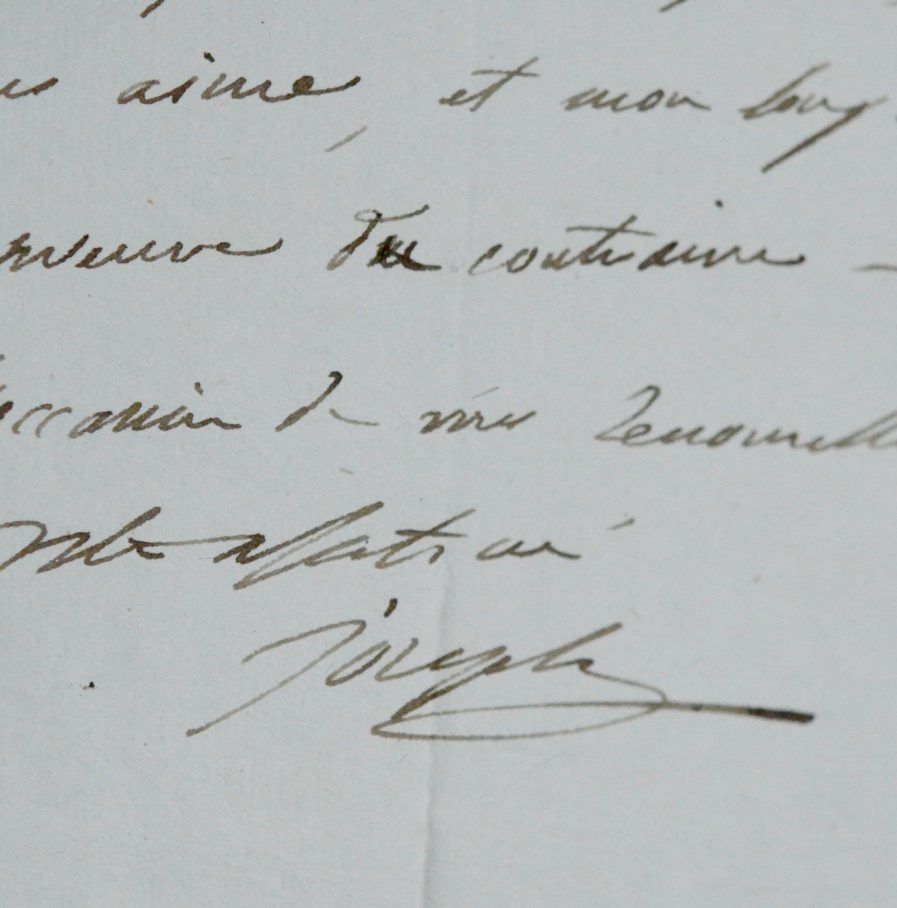 aime, et mon long
preuve du contraire -
l'occasion de vous renouvelle
affection
Joseph